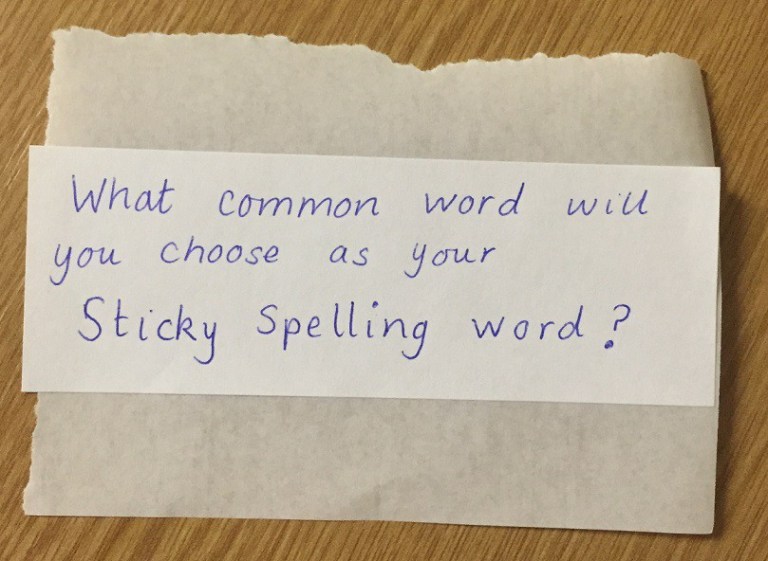 What common word will
you choose as your
Sticky Spelling word?